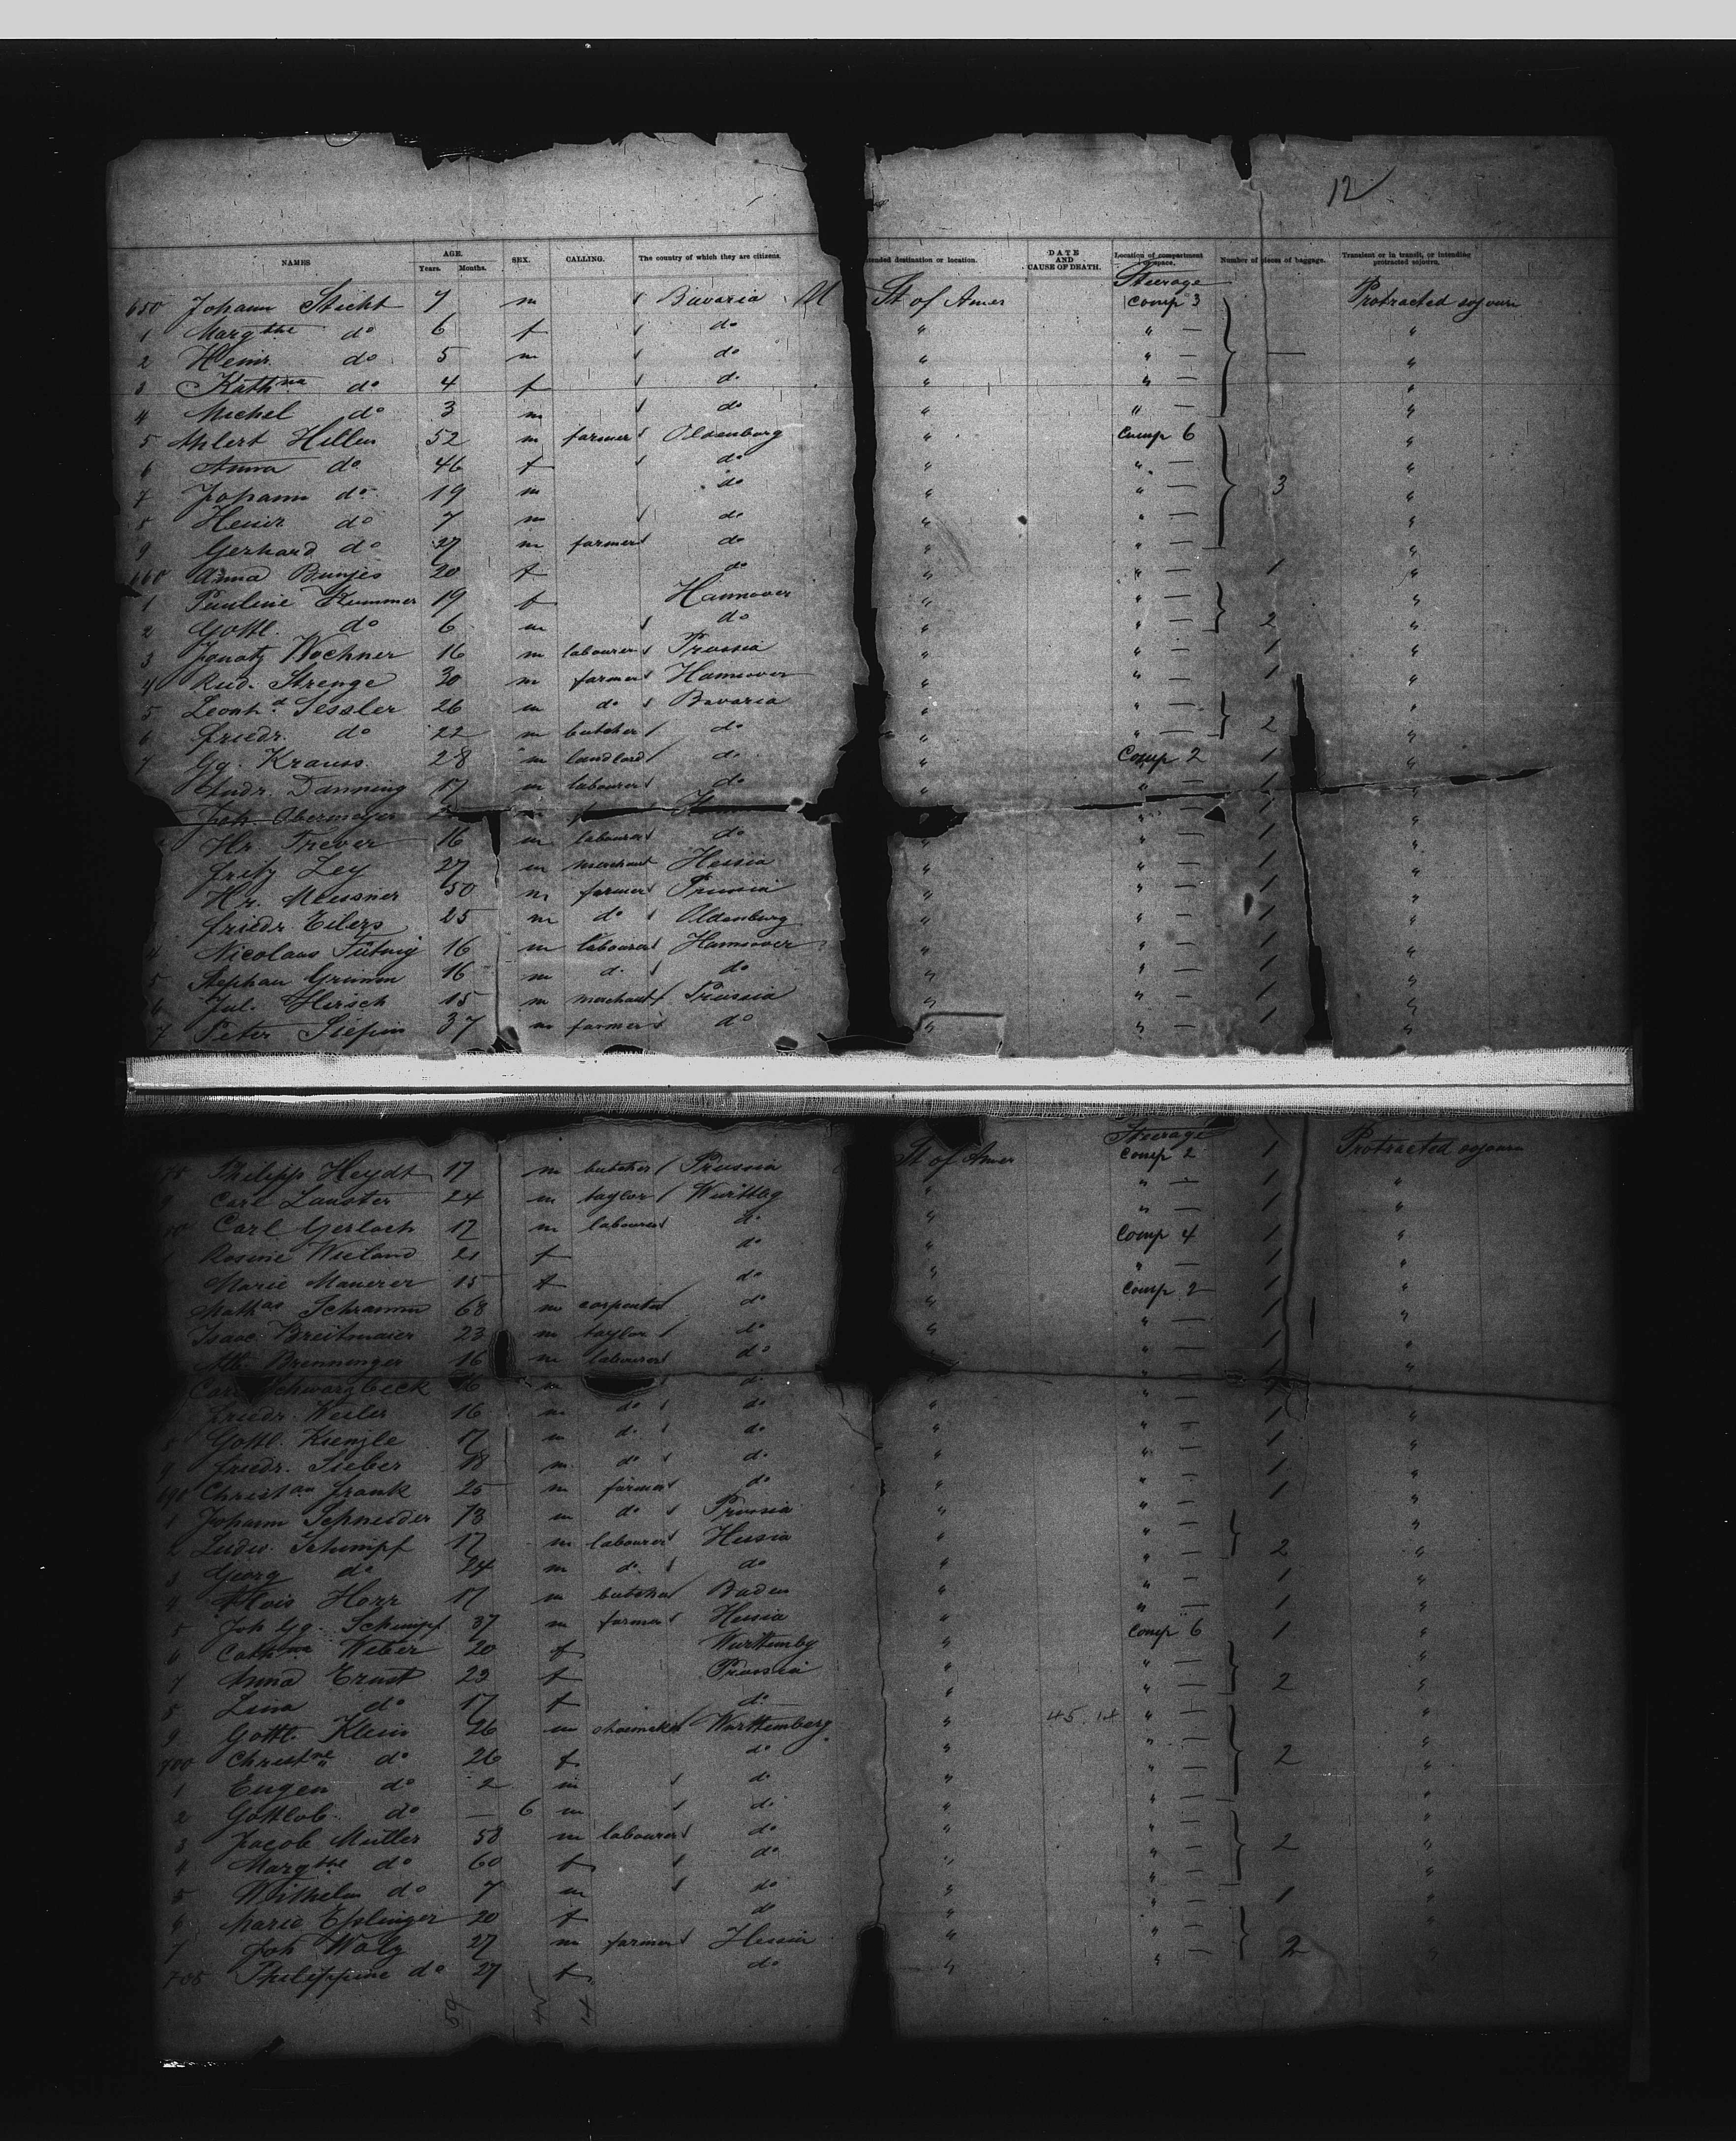 12
NAMES AGE. Years. Months. SEX. CALLING. The country of which they are citizens. Intended destination or location. DATE AND CAUSE OF DEATH. Location of compartment or space. Number of pieces of baggage. Transient or in transit, or intending protracted sojourn.
Steerage
650 Johann Sticht 7 m Bavaria U St of Amer Comp 3 Protracted sojourn
1 Margthe do 6 f do " " — "
2 Heinr do 5 m do " " — "
3 Kathna do 4 f do " " — "
4 Michel do 3 m do " " — "
5 Ahlert Hillen 52 m farmer Oldenburg " Comp 6 "
6 Anna do 46 f do " " — "
7 Johann do 19 m do " " — 3 "
8 Heinr do 7 m do " " — "
9 Gerhard do 27 m farmer do " " — "
660 Anna Bunjes 20 f do " " — 1 "
1 Pauline Kummer 19 f Hannover " " — "
2 Gottl. do 6 m do " " — 2 "
3 Ignatz Wochner 16 m labourer Prussia " " — 1 "
4 Rud. Strenge 30 m farmer Hannover " " — 1 "
5 Leonhd Sessler 26 m do Bavaria " " — "
6 Friedr. do 22 m butcher do " " — 2 "
7 Gg. Krauss 28 m landlord do " Comp 2 1 "
Andr. Danning 17 m labourer do " " — 1 "
Joh. Obermeyer " — 1 "
Hr. Trever 16 m labourer do " " — 1 "
Fritz Ley 27 m merchant Hessia " " — 1 "
Hr. Meissner 50 m farmer Prussia " " — 1 "
Friedr Eilers 25 m do Oldenburg " " — 1 "
4 Nicolaus 16 m labourer Hannover " " — 1 "
5 Stephan Grimm 16 m do do " " — 1 "
6 Jul. Hirsch 15 m merchant Prussia " " — 1 "
7 Peter 37 m farmer do " " — 1 "
Steerage
78 Philipp Heydt 17 m butcher Prussia St of Amer Comp 2 1 Protracted sojourn
9 Carl Lauster 24 m taylor Wurttbg " " — 1 "
80 Carl Gerlach 17 m labourer do " " — 1 "
1 Rosine Wieland 21 f do " Comp 4 1 "
Marie Maurer 15 f do " " — 1 "
Mathas Schramm 68 m carpenter do " Comp 2 1 "
Isaac Breitmaier 23 m taylor do " " — 1 "
Brenninger 16 m labourer do " — 1 "
Carl Schwarzbeck 16 m do " — "
Friedr. Weiler 16 m do do " " — 1 "
8 Gottl. Kienzle 17 m do do " " — 1 "
9 Friedr. Sieber 18 m do do " " — 1 "
690 Christan Frank 25 m farmer do " " — 1 "
1 Johann Schneider 18 m do Prussia " " — "
2 Ludw. Schimpf 17 m labourer Hessia " " — 2 "
3 Georg do 24 m do do " " — 1 "
4 Alois Horr 17 m butcher Baden " " — 1 "
5 Joh Gg. Schimpf 37 m farmer Hessia " Comp 6 1 "
6 Cathna Weber 20 f Wurttembg " " — "
7 Anna Ernst 23 f Prussia " " — 2 "
8 Lina do 17 f do " " — "
9 Gottl. Klein 26 m shoemaker Wurttemberg " 45.14 " — "
700 Christne do 26 f do " " — 2 "
1 Eugen do 2 m do " " — "
2 Gottlob do — 6 m do " " — "
3 Jacob Müller 58 m labourer do " " — 2 "
4 Margthe do 60 f do " " — "
5 Wilhelm do 7 m do " " — 1 "
6 Marie Eplinger 20 f do " " — "
7 Joh Walz 27 m farmer Hessia " " — 2 "
708 Philippine do 27 f do " " — "
59 45 14